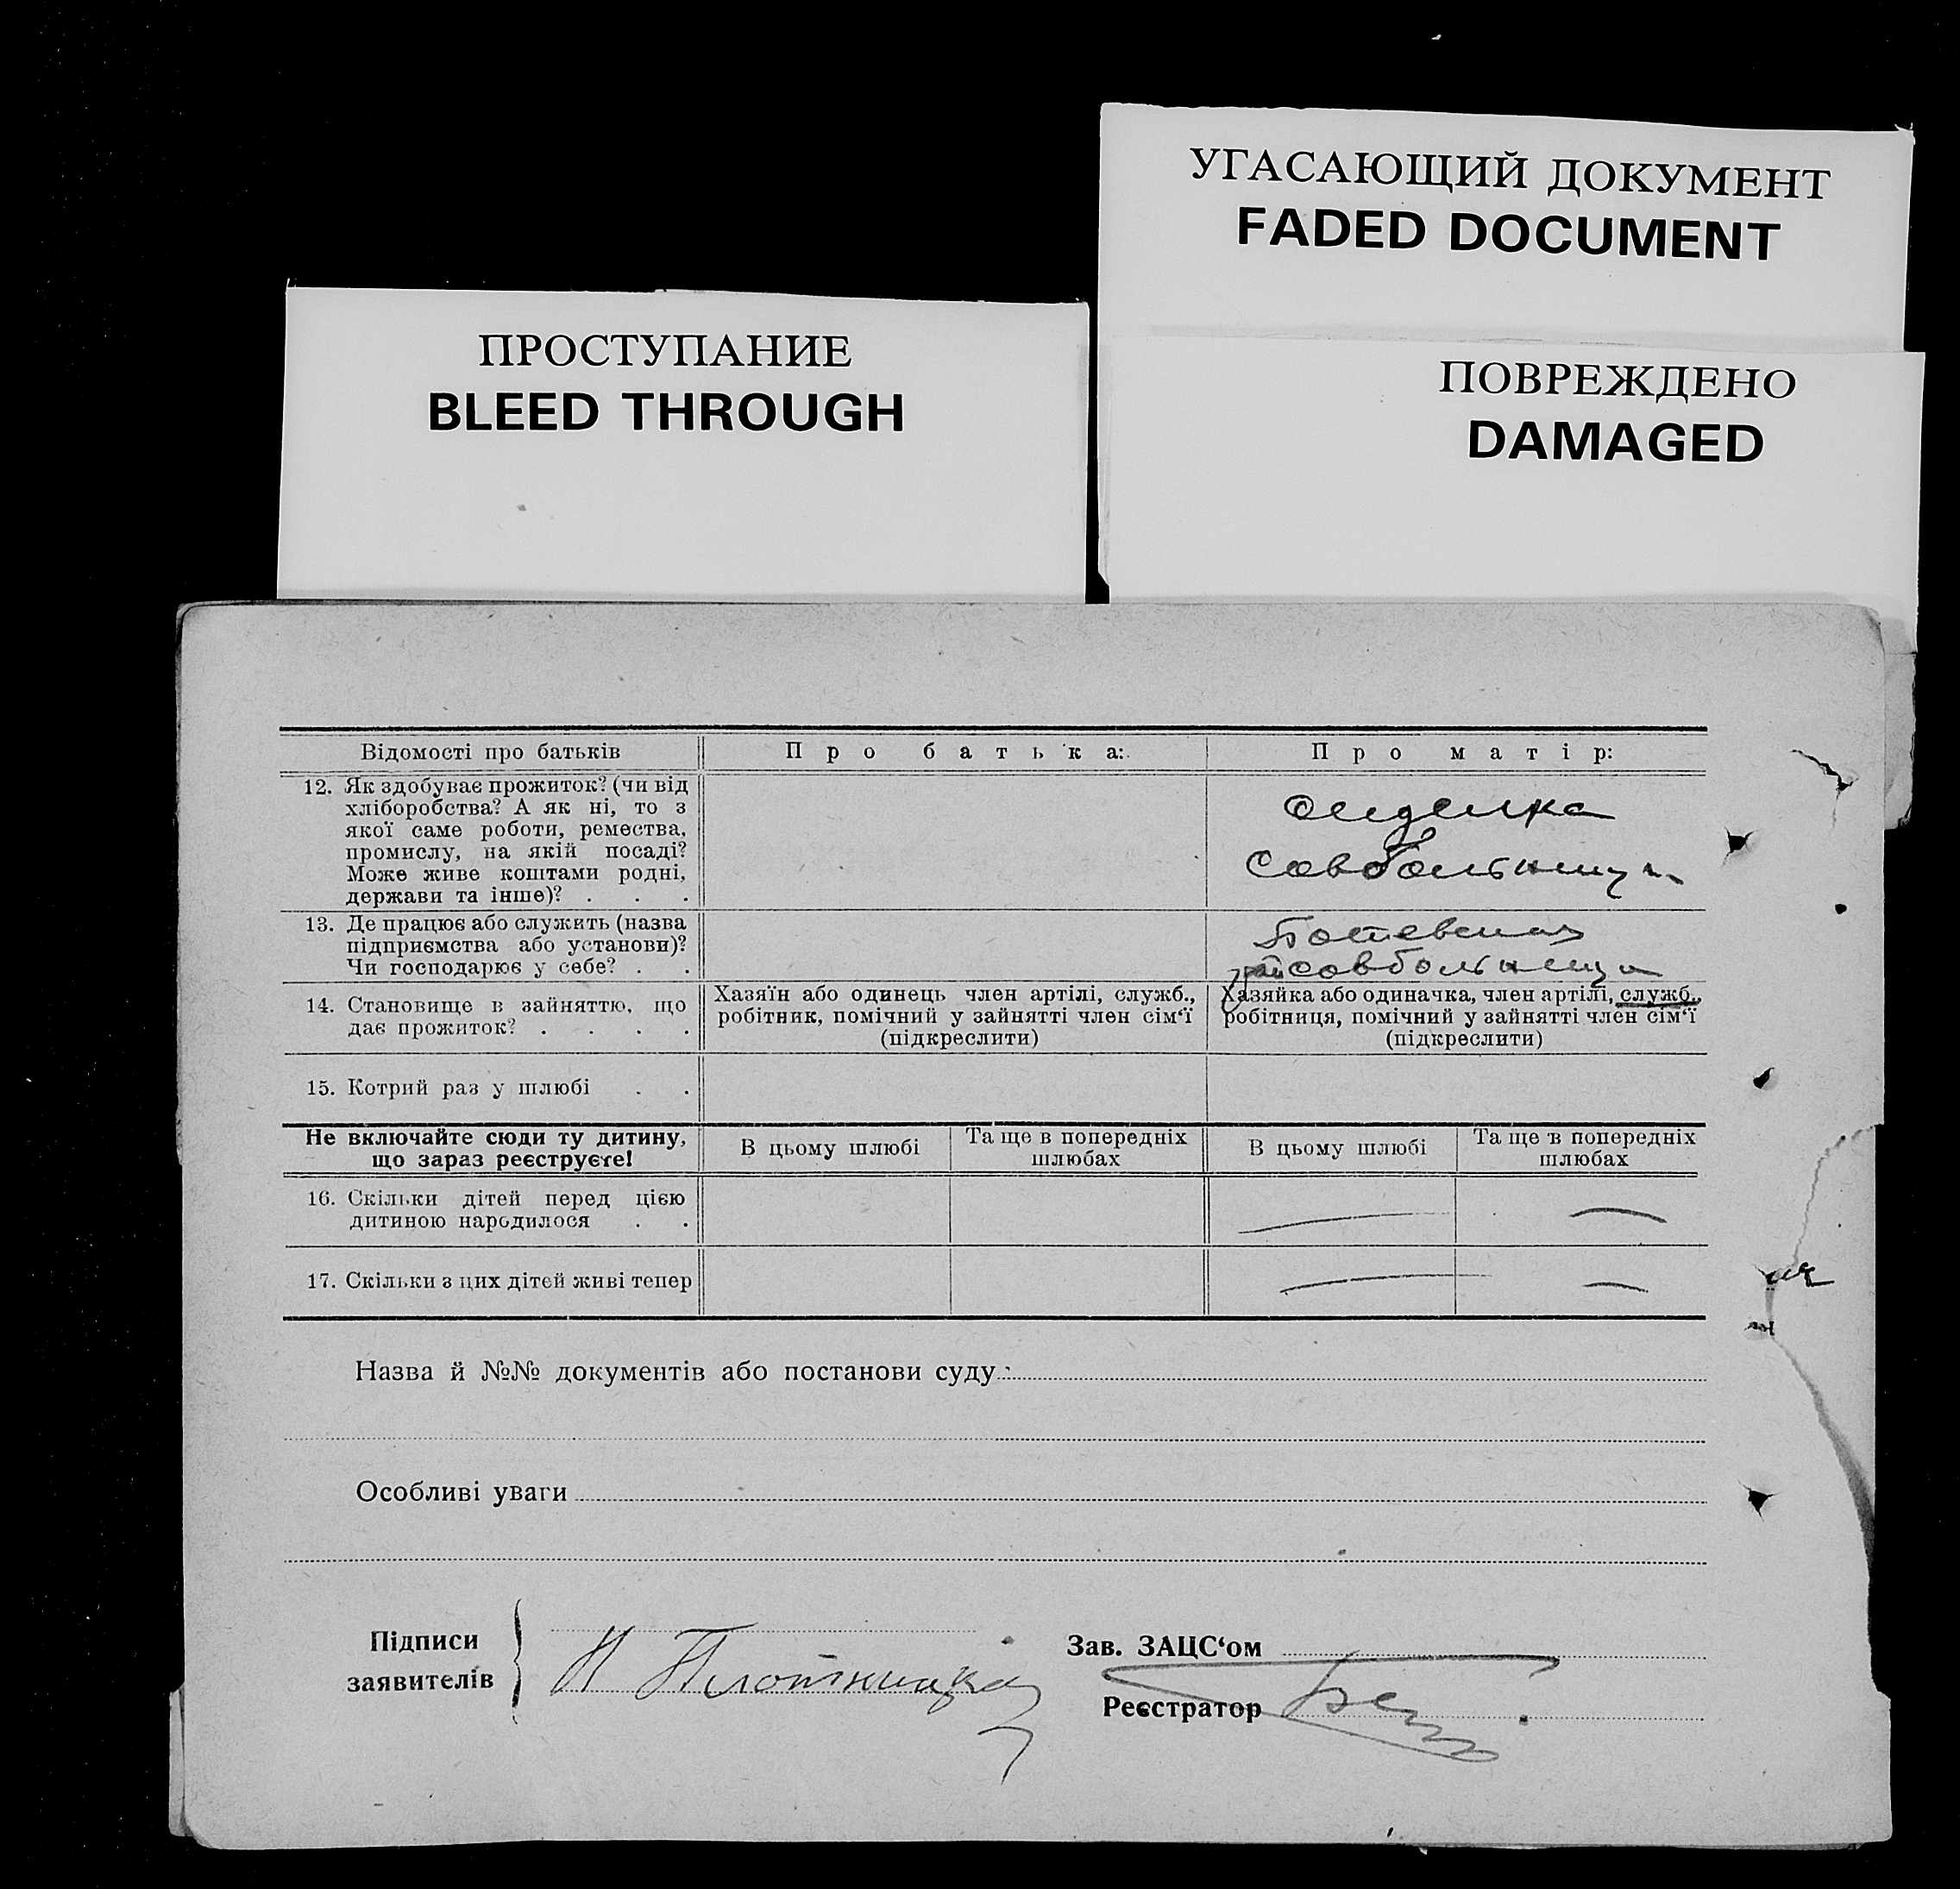 УГАСАЮЩИЙ ДОКУМЕНТ
FADED DOCUMENT
ПРОСТУПАНИЕ
BLEED THROUGH
ПОВРЕЖДЕНО
DAMAGED
Відомості про батьків
Про батька:
Про матір:
12. Як здобуває прожиток? (чи від
хліборобства? А як ні, то з
якої саме роботи, ремества,
промислу, на якій посаді?
Може живе коштами родні,
держави та інше)? . . .
сиделка
Совбольници
13. Де працює або служить (назва
підприємства або установи)?
Чи господарює у себе? . .
Ботевская
рай совбольница
14. Становище в зайняттю, що
дає прожиток? . . . .
Хазяїн або одинець член артілі, служб.,
робітник, помічний у зайнятті член сім‘ї
(підкреслити)
Хазяйка або одиначка, член артілі, служб.,
робітниця, помічний у зайнятті член сім‘ї
(підкреслити)
15. Котрий раз у шлюбі . .
Не включайте сюди ту дитину,
що зараз реєструєте!
В цьому шлюбі
Та ще в попередніх
шлюбах
В цьому шлюбі
Та ще в попередніх
шлюбах
16. Скільки дітей перед цією
дитиною народилося . .
17. Скільки з цих дітей живі тепер
Назва й №№ документів або постанови суду:
Особливі уваги
Підписи
заявителів
Н Плотницка
Зав. ЗАЦС‘ом
Реєстратор